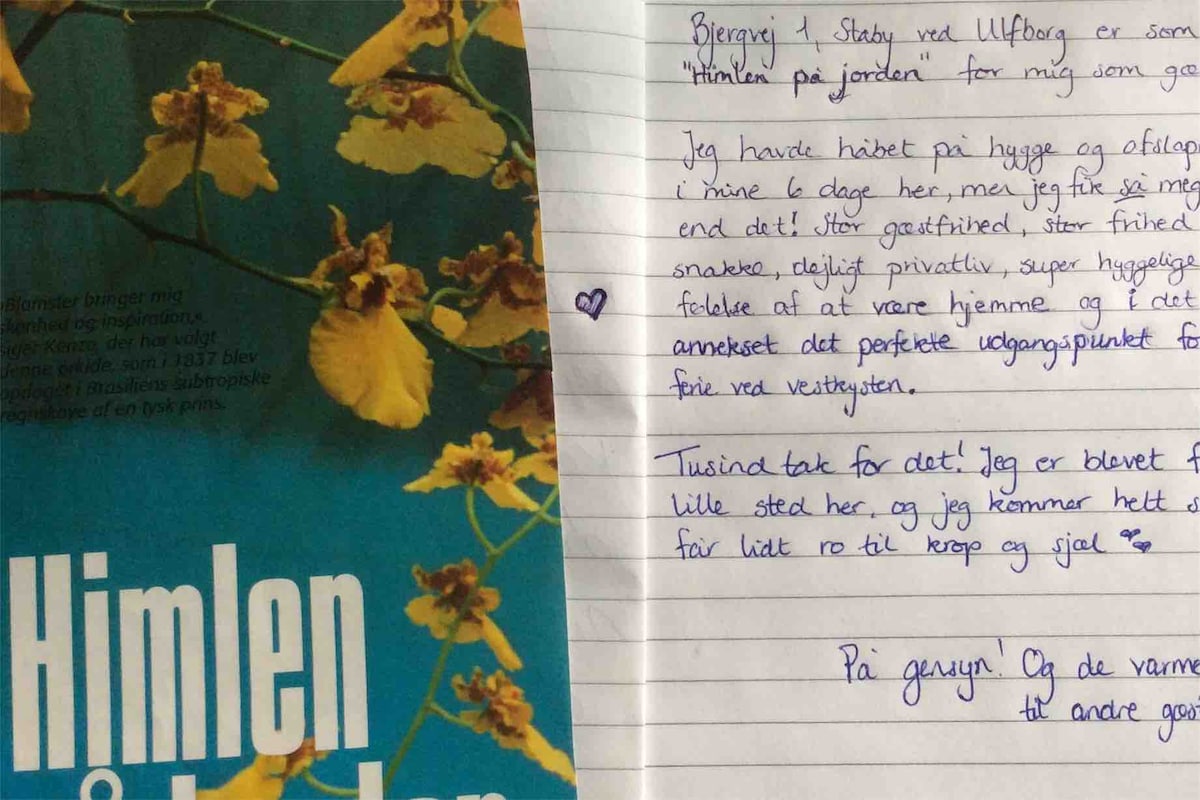 »Blomster bringer mig
skønhed og inspiration,«
siger Kenzo, der har valgt
denne orkidé, som i 1837 blev
opdaget i Brasiliens subtropiske
regnskove af en tysk prins.
Himlen
på jorden
Bjergvej 1, Staby ved Ulfborg er som
"Himlen på jorden" for mig som gæ
Jeg havde håbet på hygge og afslap
i mine 6 dage her, men jeg fik så meg
end det! Stor gæstfrihed, stor frihed
snakke, dejligt privatliv, super hyggelige
følelse af at være hjemme og i det
annekset det perfekte udgangspunkt fo
ferie ved vestkysten.
Tusind tak for det! Jeg er blevet f
lille sted her, og jeg kommer helt s
får lidt ro til krop og sjæl
På gensyn! Og de varme
til andre gæst